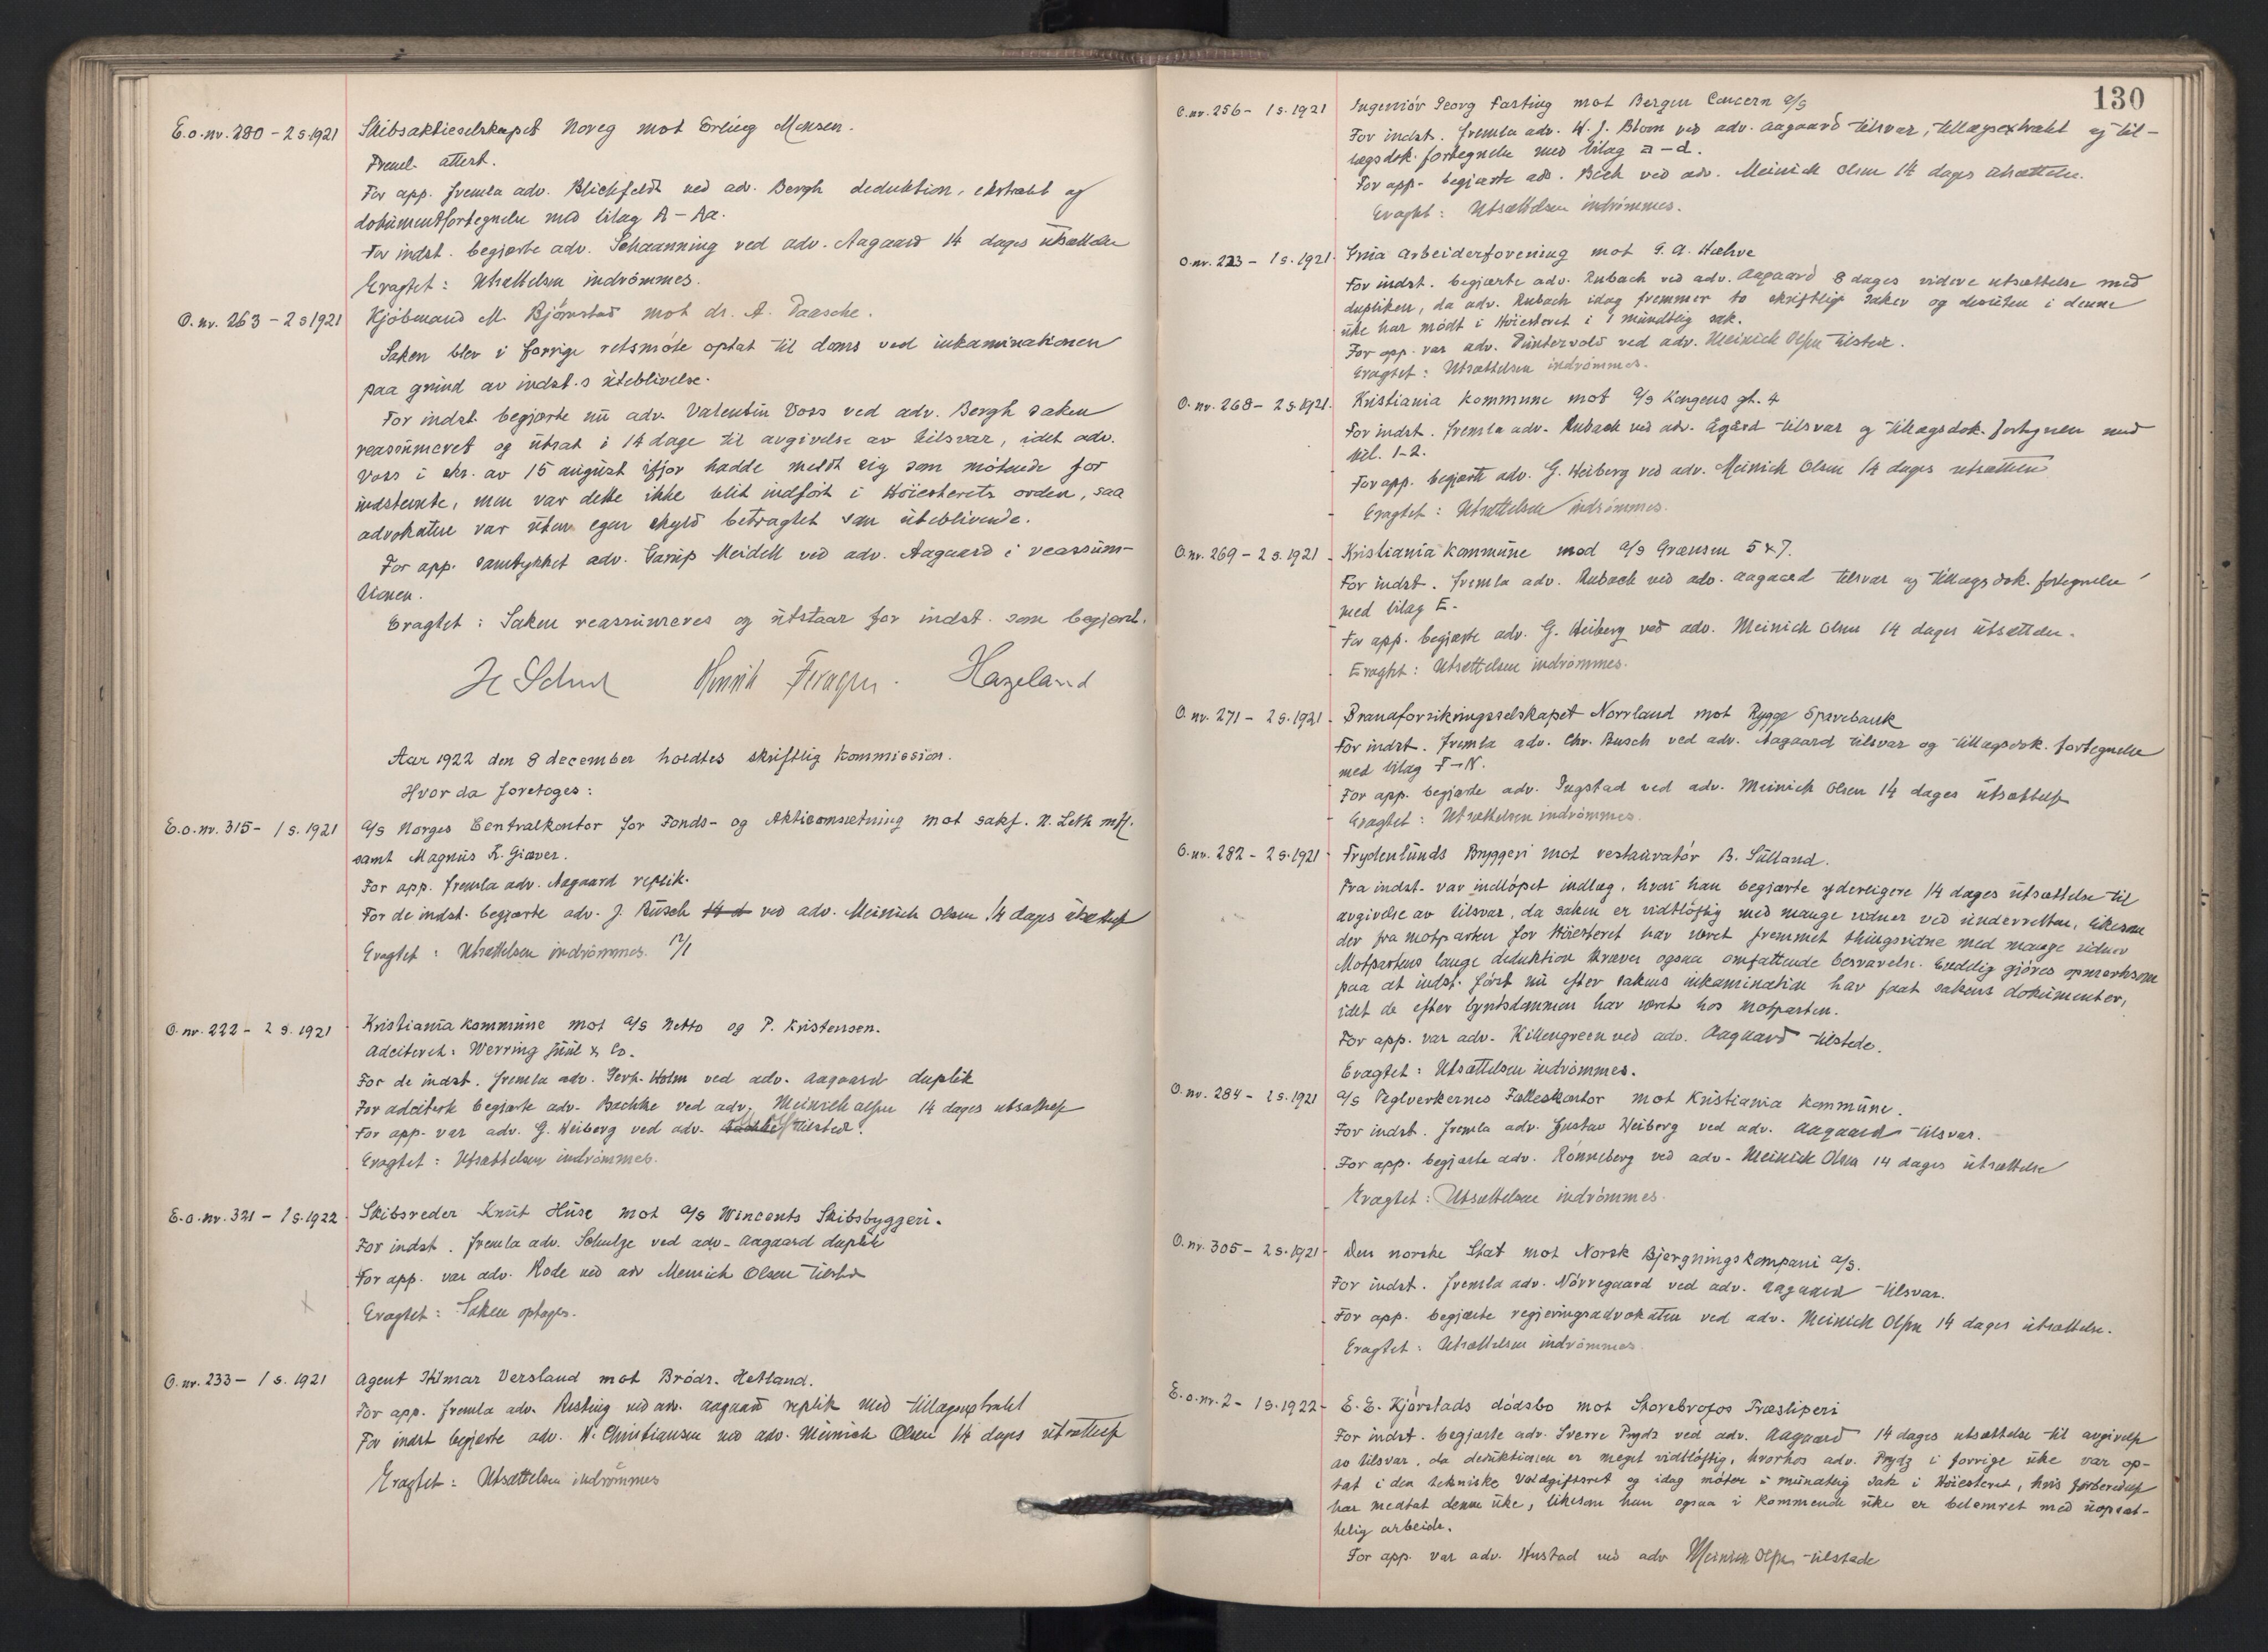 E.o.nr. 280 - 2 s. 1921 Skibsaktieselskapet Noreg mot Erling Monsen.
Freml. attest.
For app. fremla adv. Blichfeldt ved adv. Bergh deduktion, ekstrakt og
dokumentfortegnelse med bilag A - Aa.
For indst. begjærte adv. Schaanning ved adv. Aagaard 14 dages utsættelse
Eragtet: Utsættelsen indrømmes.
O. nr. 263 - 2 s 1921 Kjøbmand M. Bjørnstad mot dr. A. Paasche.
Saken blev i forrige retsmøte optat til doms ved inkaminationen
paa grund av indst.s uteblivelse.
For indst. begjærte nu adv. Valentin Voss ved adv. Bergh saken
reassumeret og utsat i 14 dage til avgivelse av tilsvar, idet adv.
Voss i skr. av 15 august ifjor hadde meldt sig som møtende for
indstevnte, men var dette ikke blit indført i Høiesterets orden, saa
advokaten var uten egen skyld betragtet som uteblivende.
For app. samtykket adv. Garup Meidell ved adv. Aagaard i reassum-
tionen.
Eragtet: Saken reassumeres og utstaar for indst. som begjært.
Hazeland
Aar 1922 den 8 december holdtes skriftlig kommission.
Hvor da foretoges:
E.o.nr. 315 - 1 s. 1921 A/S Norges Centralkontor for Fonds- og Aktieomsætning mot sakf. N. Leth mfl.
samt Magnus K. Giæver.
For app. fremla adv. Aagaard replik.
For de indst. begjærte adv. J. Busch 14 d ved adv. Meinich Olsen 14 dages utsættelse
Eragtet: Utsættelsen indrømmes. 12/1
O. nr. 222 - 2 s. 1921 Kristiania kommune mot A/S Netto og P. Kristensen.
Adciteret: Werring Juul & Co.
For de indst. fremla adv. Gerh. Holm ved adv. Aagaard duplik
For adciterte begjærte adv. Bachke ved adv. Meinich Olsen 14 dages utsættelse
For app. var adv. G. Heiberg ved adv. tilstede.
Eragtet: Utsættelsen indrømmes.
E.o.nr. 321 - 1 s. 1922 Skibsreder Knut Huse mot A/S Wincents Skibsbyggeri.
For indst. fremla adv. Schulze ved adv. Aagaard duplik
For app. var adv. Rode ved adv Meinich Olsen tilstede
Eragtet: Saken optages.
O. nr. 233 - 1 s. 1921 Agent Hilmar Versland mot Brødr. Hetland.
For app. fremla adv. Resting ved adv. Aagaard replik med tillægsextrakt
For indst begjærte adv. W. Christiansen ved adv. Meinich Olsen 14 dages utsættelse
Eragtet: Utsættelsen indrømmes
130
O.nr. 256 - 1 s. 1921 Ingeniør Georg Fasting mot Bergen Concern A/S
For indst. fremla adv. H. J. Blom ved adv. Aagaard tilsvar, tillægsextrakt og til-
lægsdok. fortegnelse med bilag a - d.
For app. begjærte adv. Bech ved adv. Meinich Olsen 14 dages utsættelse.
Eragtet: Utsættelsen indrømmes.
O.nr. 223 - 1 s. 1921 Ynia Arbeiderforening mot G. A. Hælve
For indst. begjærte adv. Rubach ved adv. Aagaard 8 dages videre utsættelse med
dupliken, da adv. Rubach idag fremmer to skriftlige saker og desuten i denne
uke har mødt i Høiesteret i 1 mundtlig sak.
For app. var adv. Duntervold ved adv. Meinich Olsen tilstede.
Eragtet: Utsættelsen indrømmes.
O. nr. 268 - 2 s. 1921. Kristiania kommune mot A/S Kongens gt. 4
For indst. fremla adv. Rubach ved adv. Agård tilsvar og tillægsdok. fortegnelse med
bil. 1-2.
For app. begjærte adv. G. Heiberg ved adv. Meinich Olsen 14 dages utsættelse
Eragtet: Utsættelsen indrømmes.
O.nr. 269 - 2 s. 1921 Kristiania kommune mod A/S Grænsen 5 & 7.
For indst. fremla adv. Rubach ved adv. Aagaard tilsvar og tillægsdok. fortegnelse
med bilag E.
For app. begjærte adv. G. Heiberg ved adv. Meinich Olsen 14 dages utsættelse.
Eragtet: Utsættelsen indrømmes.
O. nr. 271 - 2 s. 1921 Brandforsikringsselskapet Norrland mot Rygge Sparebank
For indst. fremla adv. Chr. Busch ved adv. Aagaard tilsvar og tillægsdok. fortegnelse
med bilag F-N.
For app. begjærte adv. Ingstad ved adv. Meinich Olsen 14 dages utsættelse
Eragtet: Utsættelsen indrømmes.
O.nr. 282 - 2 s. 1921 Frydenlunds Bryggeri mot restauratør B. Sulland.
Fra indst. var indløpet indlæg, hvori han begjærte yderligere 14 dages utsættelse til
avgivelse av tilsvar, da saken er vidtløftig med mange vidner ved underretten, likesom
der fra motparten for Høiesteret har været fremmet thingsvidne med mange vidner
Motpartens lange deduktion kræver ogsaa omfattende besvarelse. Endelig gjøres opmerksom
paa at indst. først nu efter sakens inkamination har faat sakens dokumenter,
idet de efter byretsdommen har været hos motparten.
For app. var adv. Killengreen ved adv. Aagaard tilstede.
Eragtet: Utsættelsen indrømmes.
O. nr. 284 - 2 s. 1921 A/S Teglverkernes Fælleskontor mot Kristiania kommune.
For indst. fremla adv. Gustav Heiberg ved adv. Aagaard tilsvar.
For app. begjærte adv. Rønneberg ved adv. Meinich Olsen 14 dages utsættelse
Eragtet: Utsættelsen indrømmes.
O. nr. 305 - 2 s. 1921 Den norske Stat mot Norsk Bjergningskompani A/S.
For indst. fremla adv. Nørregaard ved adv. Aagaard tilsvar.
For app. begjærte regjeringsadvokaten ved adv. Meinich Olsen 14 dages utsættelse.
Eragtet: Utsættelsen indrømmes
E.o.nr. 2 - 1 s. 1922 E. E. Kjørstads dødsbo mot Storebrofos Træsliperi
For indst. begjærte adv. Sverre Prydz ved adv. Aagaard 14 dages utsættelse til avgivelse
av tilsvar, da deduktionen er meget vidtløftig, hvorhos adv. Prydz i forrige uke var op-
tat i den tekniske Voldgiftsret og idag møter i mundtlig sak i Høiesteret, hvis forberedelse
har medtat denne uke, likesom han ogsaa i kommende uke er belemret med uopsæt-
telig arbeide.
For app. var adv. Hustad ved adv Meinich Olsen tilstede